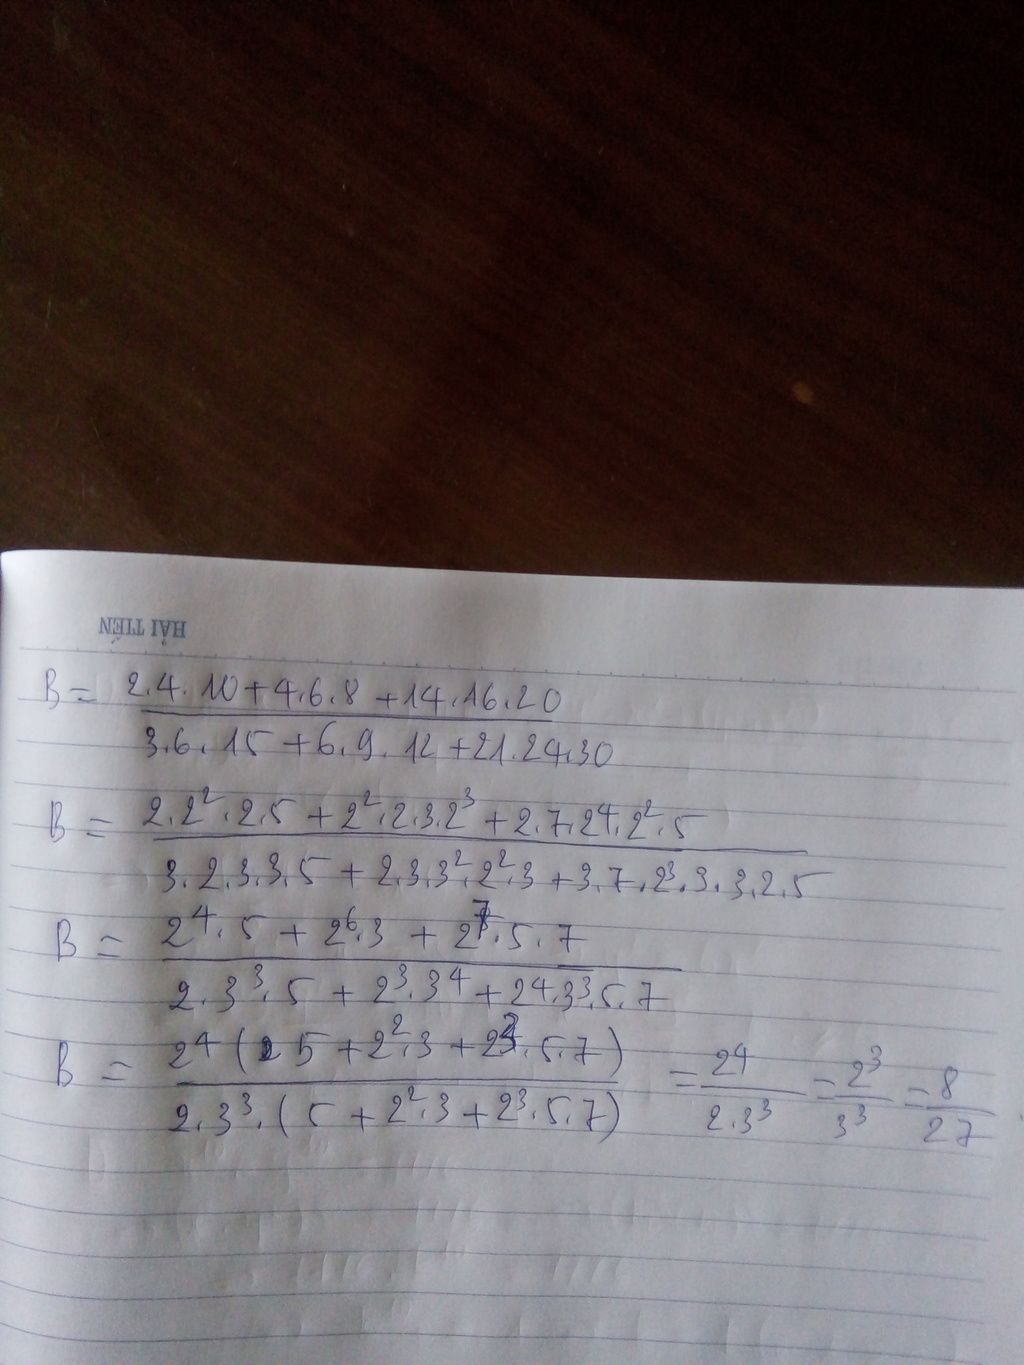 HẢI TIẾN
B = 2.4.10+4.6.8+14.16.20
3.6.15+6.9.12+21.24.30
B = 2.2².2.5 + 2².2.3.2³ + 2.7.2⁴.2².5
3.2.3.3.5 + 2.3.3².2².3 + 3.7.2³.3.3.2.5
B = 2⁴.5 + 2⁶.3 + 2⁷.5.7
2.3³.5 + 2³.3⁴ + 2⁴.3³.5.7
B = 2⁴(5 + 2².3 + 2³.5.7) = 2⁴ = 2³ = 8
2.3³.(5 + 2².3 + 2³.5.7) 2.3³ 3³ 27